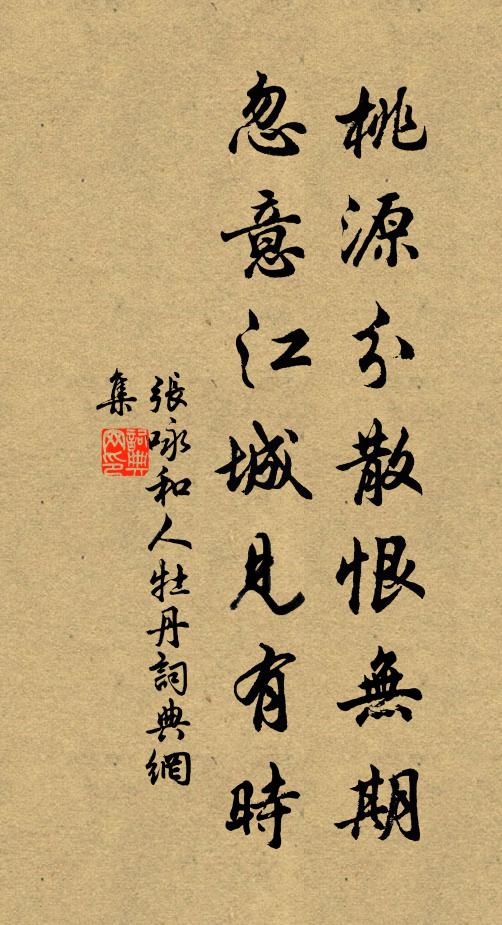 桃源分散恨無期
忽意江城見有時
張咏和人牡丹詞典網
集
詞典
网印